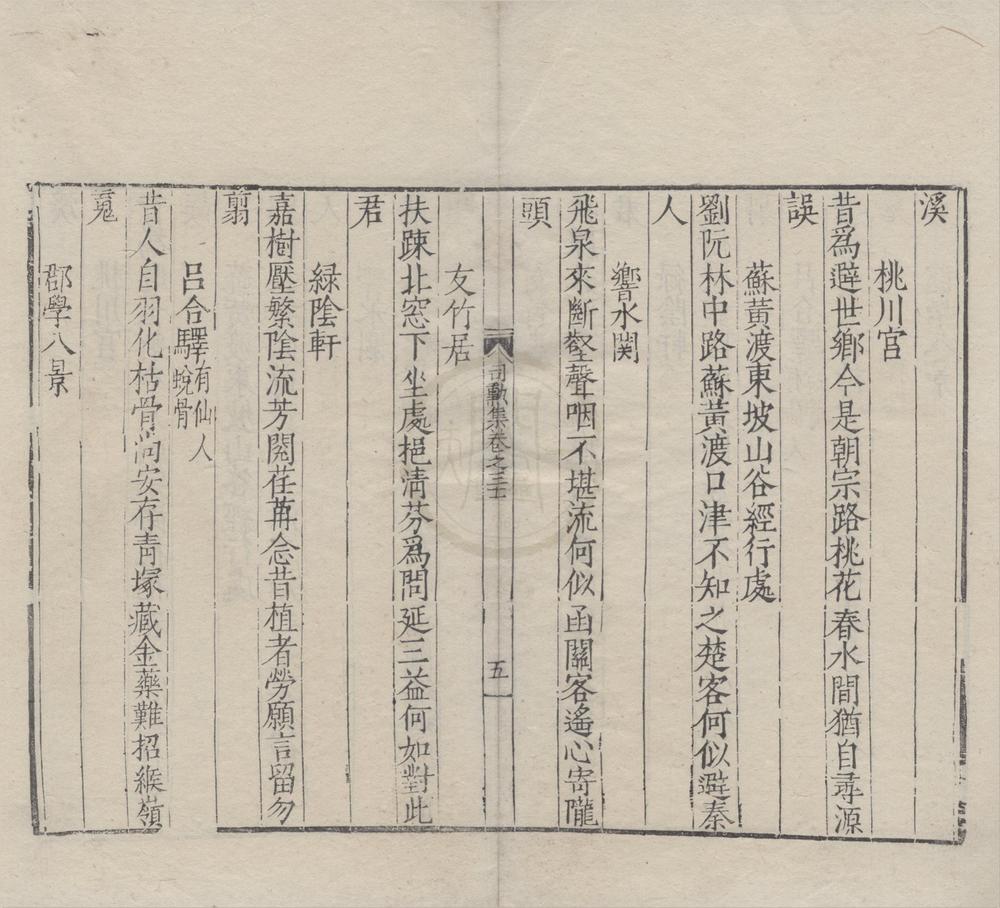 溪
桃川宮
昔爲避世鄉今是朝宗路桃花春水間猶自尋源
誤
蘇黃渡東坡山谷經行處
劉阮林中路蘇黃渡口津不知之楚客何似避秦
人
響水関
飛泉來斷壑聲咽不堪流何似函關客遙心寄隴
頭
友竹居
扶踈北窓下坐處挹淸芬爲問延三益何如對此
君
司勳集卷之三
五
緑陰軒
嘉樹壓繁陰流芳閱荏苒念昔植者勞願言留勿
翦
呂合驛有仙人蛻骨
昔人自羽化枯骨尚安存靑塚藏金藥難招緱嶺
䰟
郡學八景